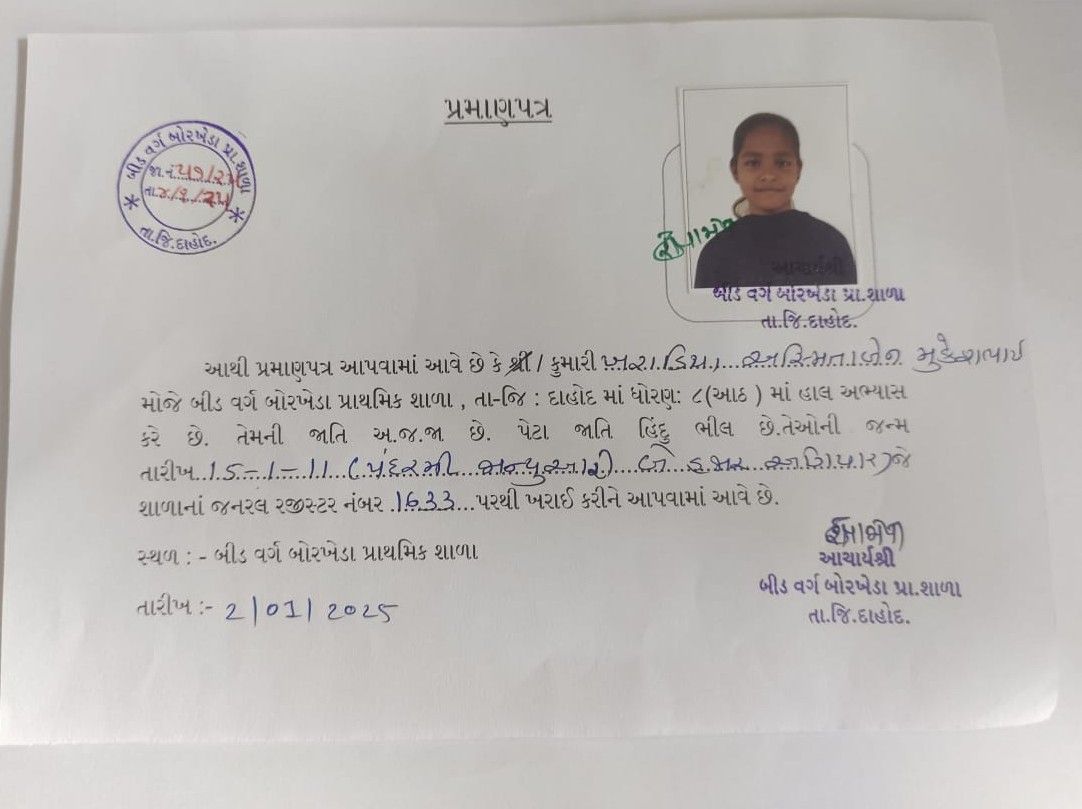 પ્રમાણપત્ર
બીડ વર્ગ બોરખેડા પ્રા.શાળા
જા.નં
તા.
તા.જિ.દાહોદ.
આચાર્યશ્રી
બીડ વર્ગ બોરખેડા પ્રા.શાળા
તા.જિ.દાહોદ.
આથી પ્રમાણપત્ર આપવામાં આવે છે કે શ્રી / કુમારી ખરાડિયા અસ્મિતાબેન મુકેશભાઈ
મોજે બીડ વર્ગ બોરખેડા પ્રાથમિક શાળા , તા-જિ : દાહોદ માં ધોરણ: ૮(આઠ ) માં હાલ અભ્યાસ
કરે છે. તેમની જાતિ અ.જ.જા છે. પેટા જાતિ હિંદુ ભીલ છે.તેઓની જન્મ
તારીખ 15-1-11 (પંદરમી જાન્યુઆરી બે હજાર અગિયાર) જે
શાળાનાં જનરલ રજીસ્ટર નંબર 1633 પરથી ખરાઈ કરીને આપવામાં આવે છે.
સ્થળ : - બીડ વર્ગ બોરખેડા પ્રાથમિક શાળા
તારીખ :- 2/01/2025
આચાર્યશ્રી
બીડ વર્ગ બોરખેડા પ્રા.શાળા
તા.જિ.દાહોદ.